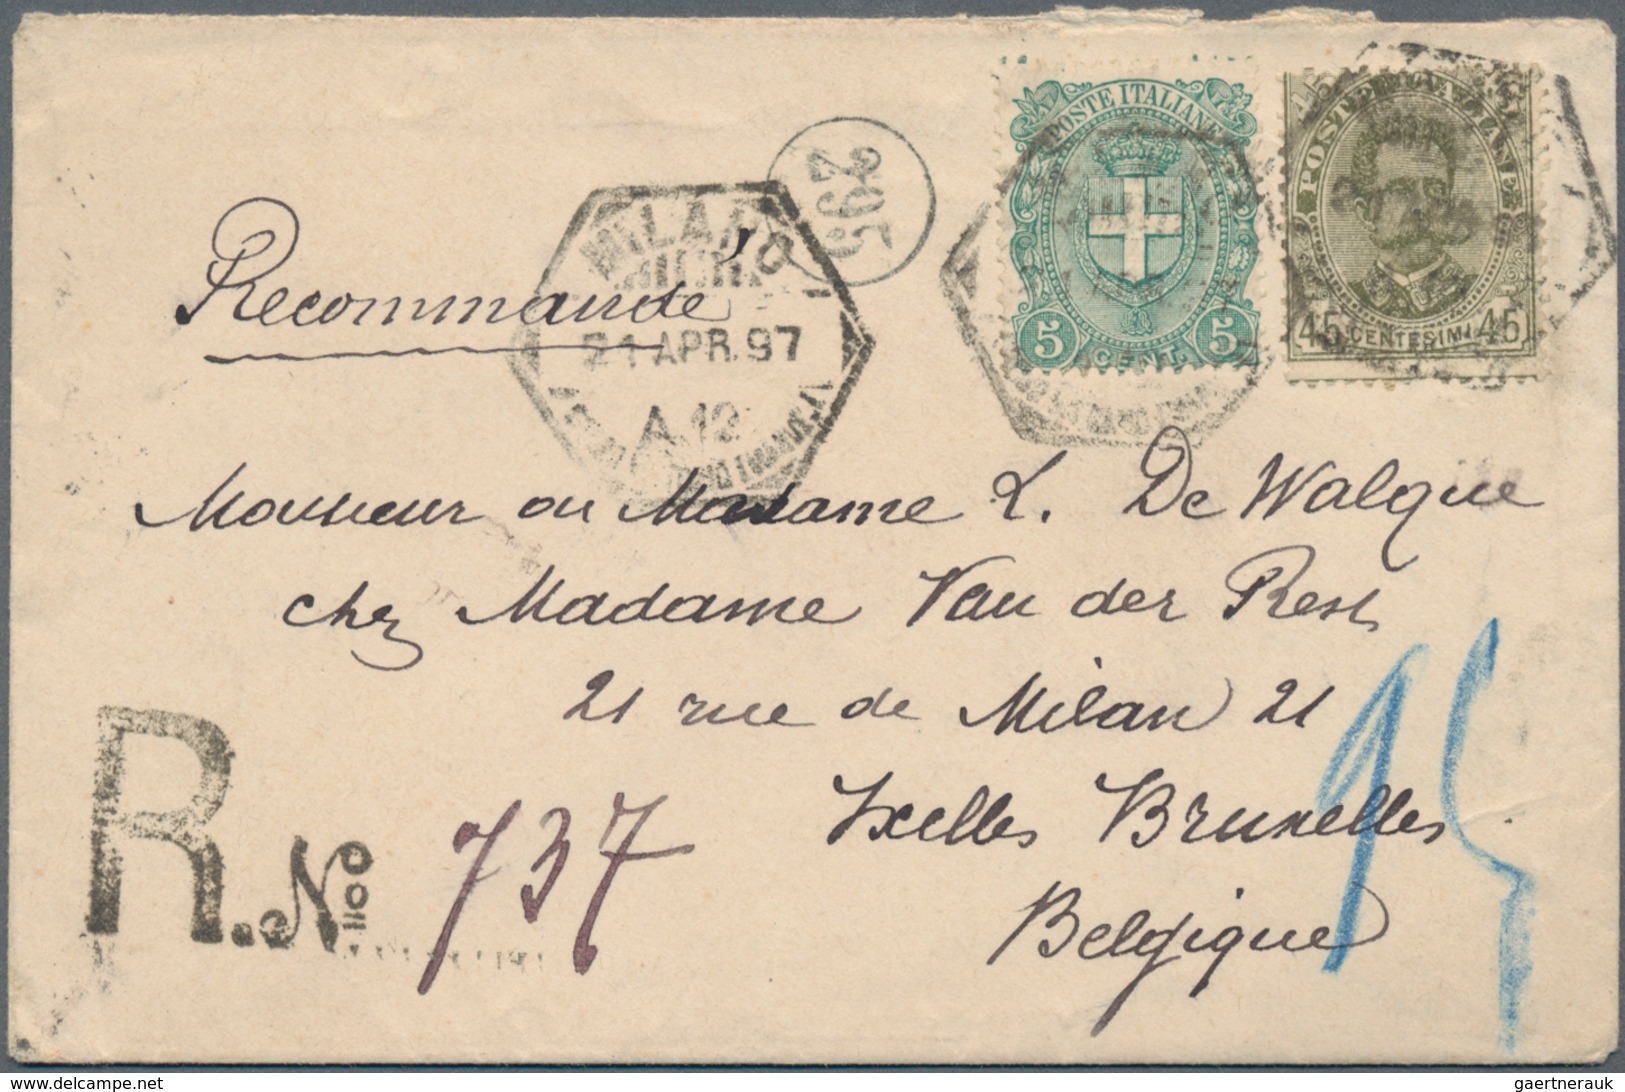 POSTE ITALIANE
5 CENT. 5
45 CENTESIMI 45
265
Recommandé
MILANO
21 APR. 97
A.12
Monsieur ou Madame L. De Walque
chez Madame Van der Rest
21 rue de Milan 21
Ixelles Bruxelles
Belgique
R. No 737
15
www.delcampe.net
gaertnerauk